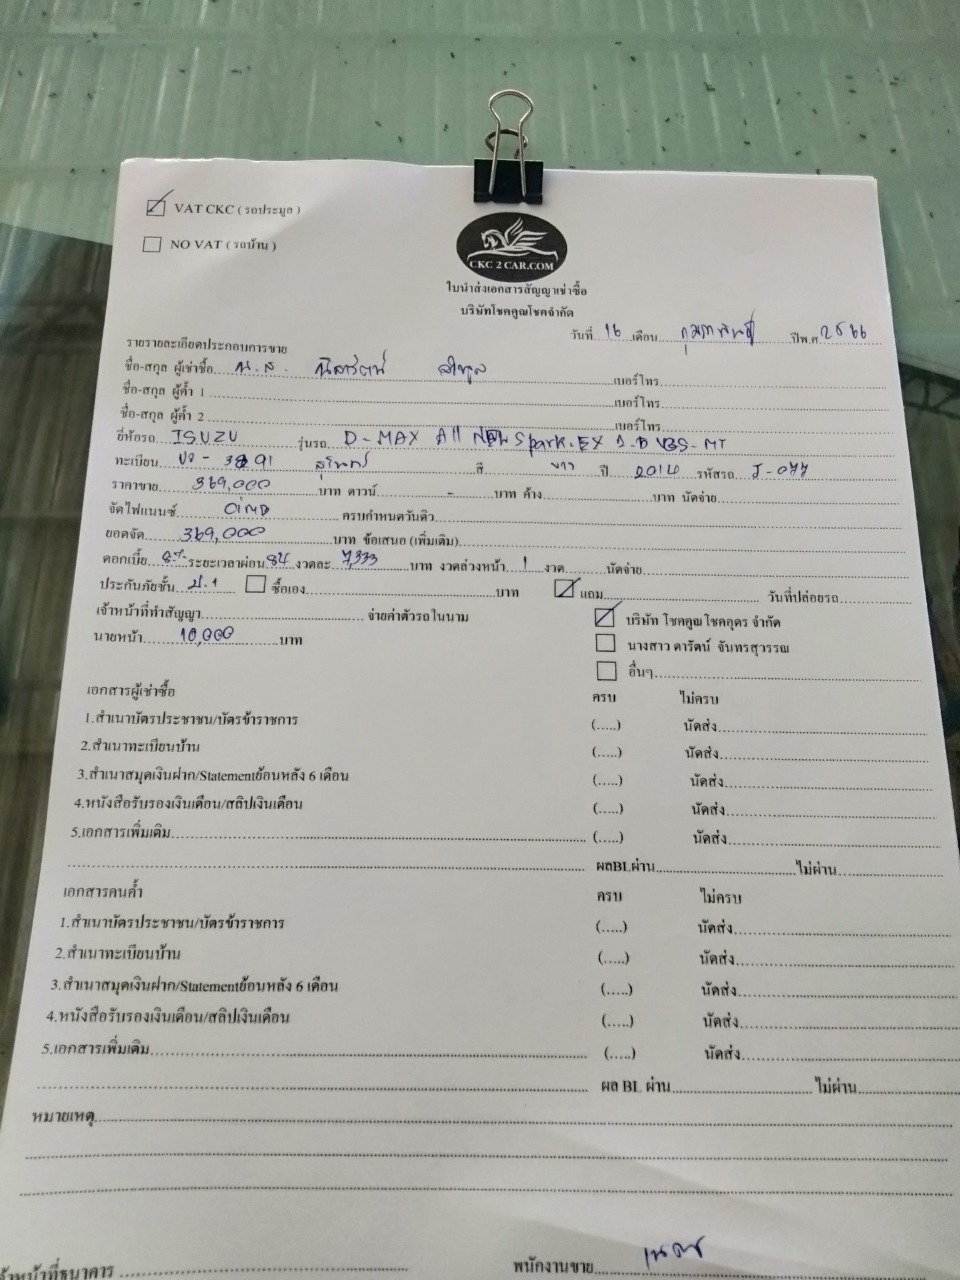 VAT CKC ( รถประมูล )
NO VAT ( รถบ้าน )
CKC 2 CAR.COM
ใบนำส่งเอกสารสัญญาเช่าซื้อ
บริษัทโชคคูณโชคจำกัด
วันที่ 16 เดือน กุมภาพันธ์ ปีพ.ศ. 2566
รายรายละเอียดประกอบการขาย
ชื่อ-สกุล ผู้เช่าซื้อ น.ส. เบอร์โทร
ชื่อ-สกุล ผู้ค้ำ 1 เบอร์โทร
ชื่อ-สกุล ผู้ค้ำ 2 เบอร์โทร
ยี่ห้อรถ ISUZU รุ่นรถ D-MAX All NEW Spark.EX VGS-MT
ทะเบียน สุรินทร์ สี ขาว ปี 2014 รหัสรถ J-077
ราคาขาย 369,000 บาท ดาวน์ - บาท ค้าง บาท นัดจ่าย
จัดไฟแนนซ์ ครบกำหนดวันดิว
ยอดจัด 369,000 บาท ข้อเสนอ (เพิ่มเติม)
ดอกเบี้ย 8% ระยะเวลาผ่อน 84 งวดละ 7,333 บาท งวดล่วงหน้า 1 งวด นัดจ่าย
ประกันภัยชั้น ป.1 ซื้อเอง บาท แถม วันที่ปล่อยรถ
เจ้าหน้าที่ทำสัญญา จ่ายค่าตัวรถในนาม บริษัท โชคคูณโชคอุดร จำกัด
นายหน้า 10,000 บาท นางสาว ดารัตน์ จันทรสุวรรณ
อื่นๆ
เอกสารผู้เช่าซื้อ ครบ ไม่ครบ
1.สำเนาบัตรประชาชน/บัตรข้าราชการ (.....) นัดส่ง
2.สำเนาทะเบียนบ้าน (.....) นัดส่ง
3.สำเนาสมุดเงินฝาก/Statementย้อนหลัง 6 เดือน (.....) นัดส่ง
4.หนังสือรับรองเงินเดือน/สลิปเงินเดือน (.....) นัดส่ง
5.เอกสารเพิ่มเติม (.....) นัดส่ง
ผลBLผ่าน ไม่ผ่าน
เอกสารคนค้ำ ครบ ไม่ครบ
1.สำเนาบัตรประชาชน/บัตรข้าราชการ (.....) นัดส่ง
2.สำเนาทะเบียนบ้าน (.....) นัดส่ง
3.สำเนาสมุดเงินฝาก/Statementย้อนหลัง 6 เดือน (.....) นัดส่ง
4.หนังสือรับรองเงินเดือน/สลิปเงินเดือน (.....) นัดส่ง
5.เอกสารเพิ่มเติม (.....) นัดส่ง
ผล BL ผ่าน ไม่ผ่าน
หมายเหตุ
เจ้าหน้าที่ธนาคาร พนักงานขาย